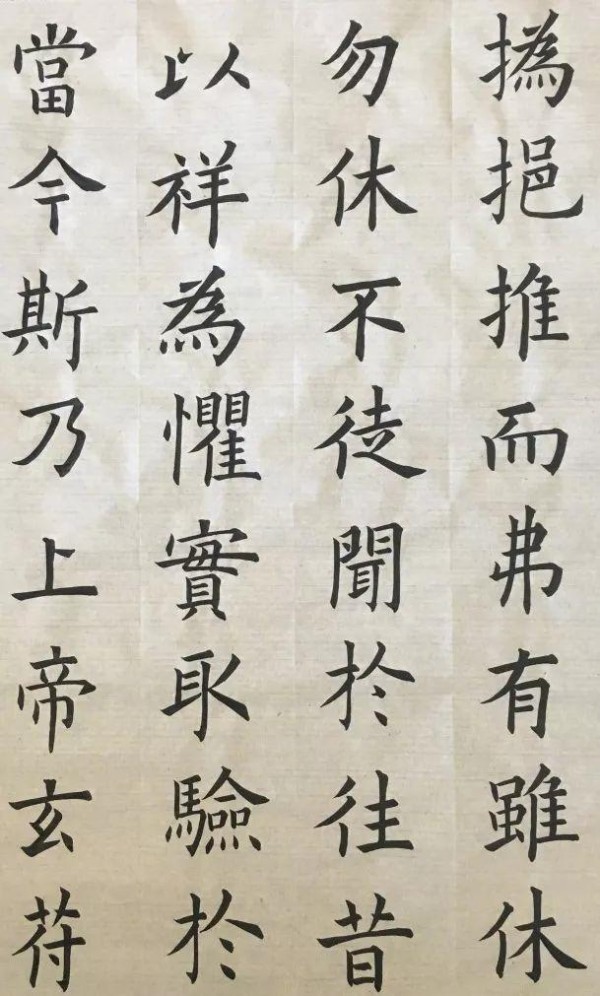 撝挹推而弗有雖休
勿休不徒聞於往昔
以祥為懼實取驗於
當今斯乃上帝玄苻